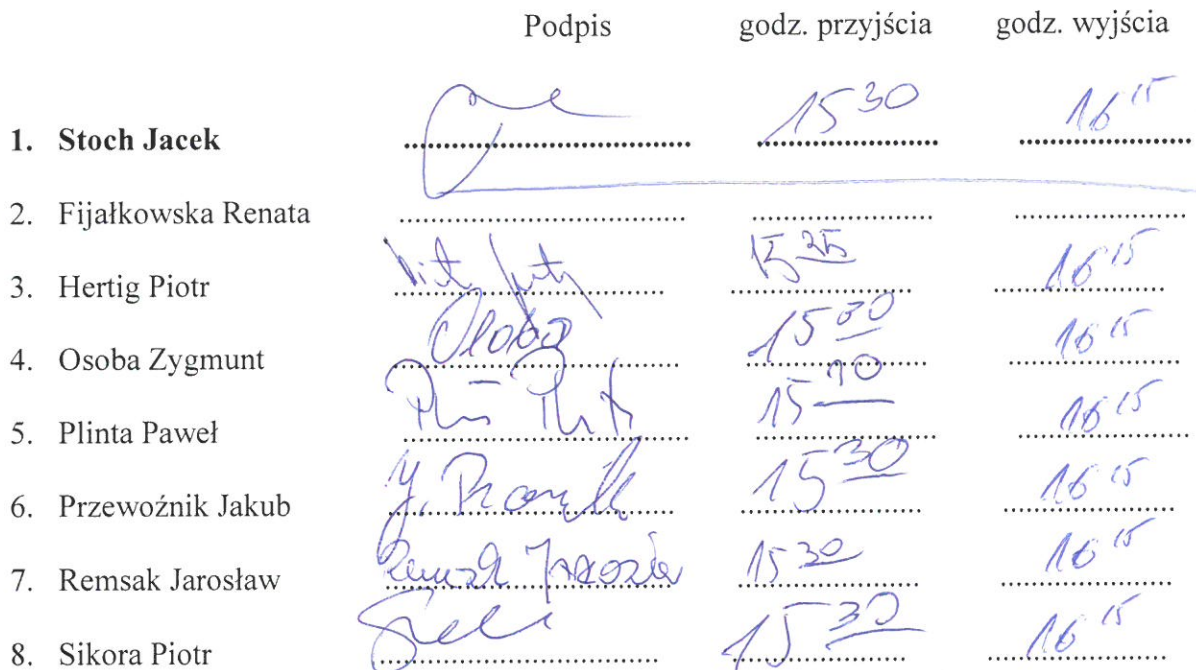 Podpis godz. przyjścia godz. wyjścia
1. Stoch Jacek 15 30 16 15
2. Fijałkowska Renata
3. Hertig Piotr 15 25 16 15
4. Osoba Zygmunt Osoba 15 30 16 15
5. Plinta Paweł 15 16 15
6. Przewoźnik Jakub 15 30 16 15
7. Remsak Jarosław Remsak Jarosław 15 30 16 15
8. Sikora Piotr 15 30 16 15